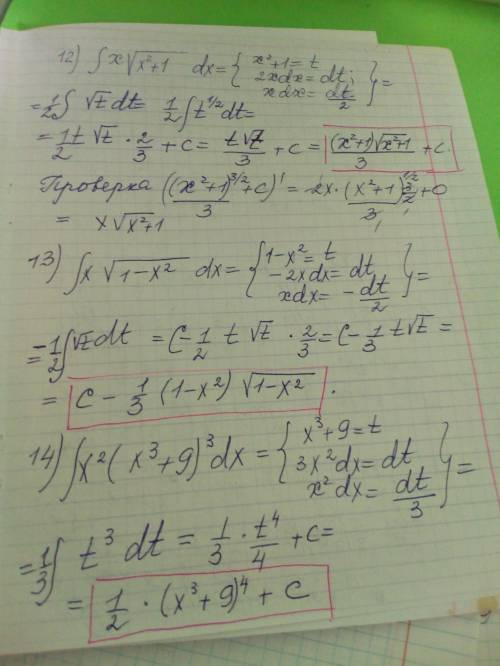 12) ∫ x√(x²+1) dx = { x²+1 = t
2xdx = dt;
xdx = dt/2 } =
= 1/2 ∫ √t dt = 1/2 ∫ t^(1/2) dt =
= 1/2 t √t · 2/3 + c = t√t/3 + c = (x²+1)√(x²+1)/3 + c.
Проверка ((x²+1)^(3/2)/3 + c)' = 2x · (x²+1)^(1/2)/3 · 3/2 + 0
= x√(x²+1)
13) ∫ x √(1-x²) dx = { 1-x² = t
-2xdx = dt
xdx = -dt/2 } =
= -1/2 ∫ √t dt = C - 1/2 t √t · 2/3 = C - 1/3 t√t =
= C - 1/3 (1-x²) √(1-x²) .
14) ∫ x² (x³+9)³ dx = { x³+9 = t
3x² dx = dt
x² dx = dt/3 } =
= 1/3 ∫ t³ dt = 1/3 · t⁴/4 + c =
= 1/2 · (x³+9)⁴ + C